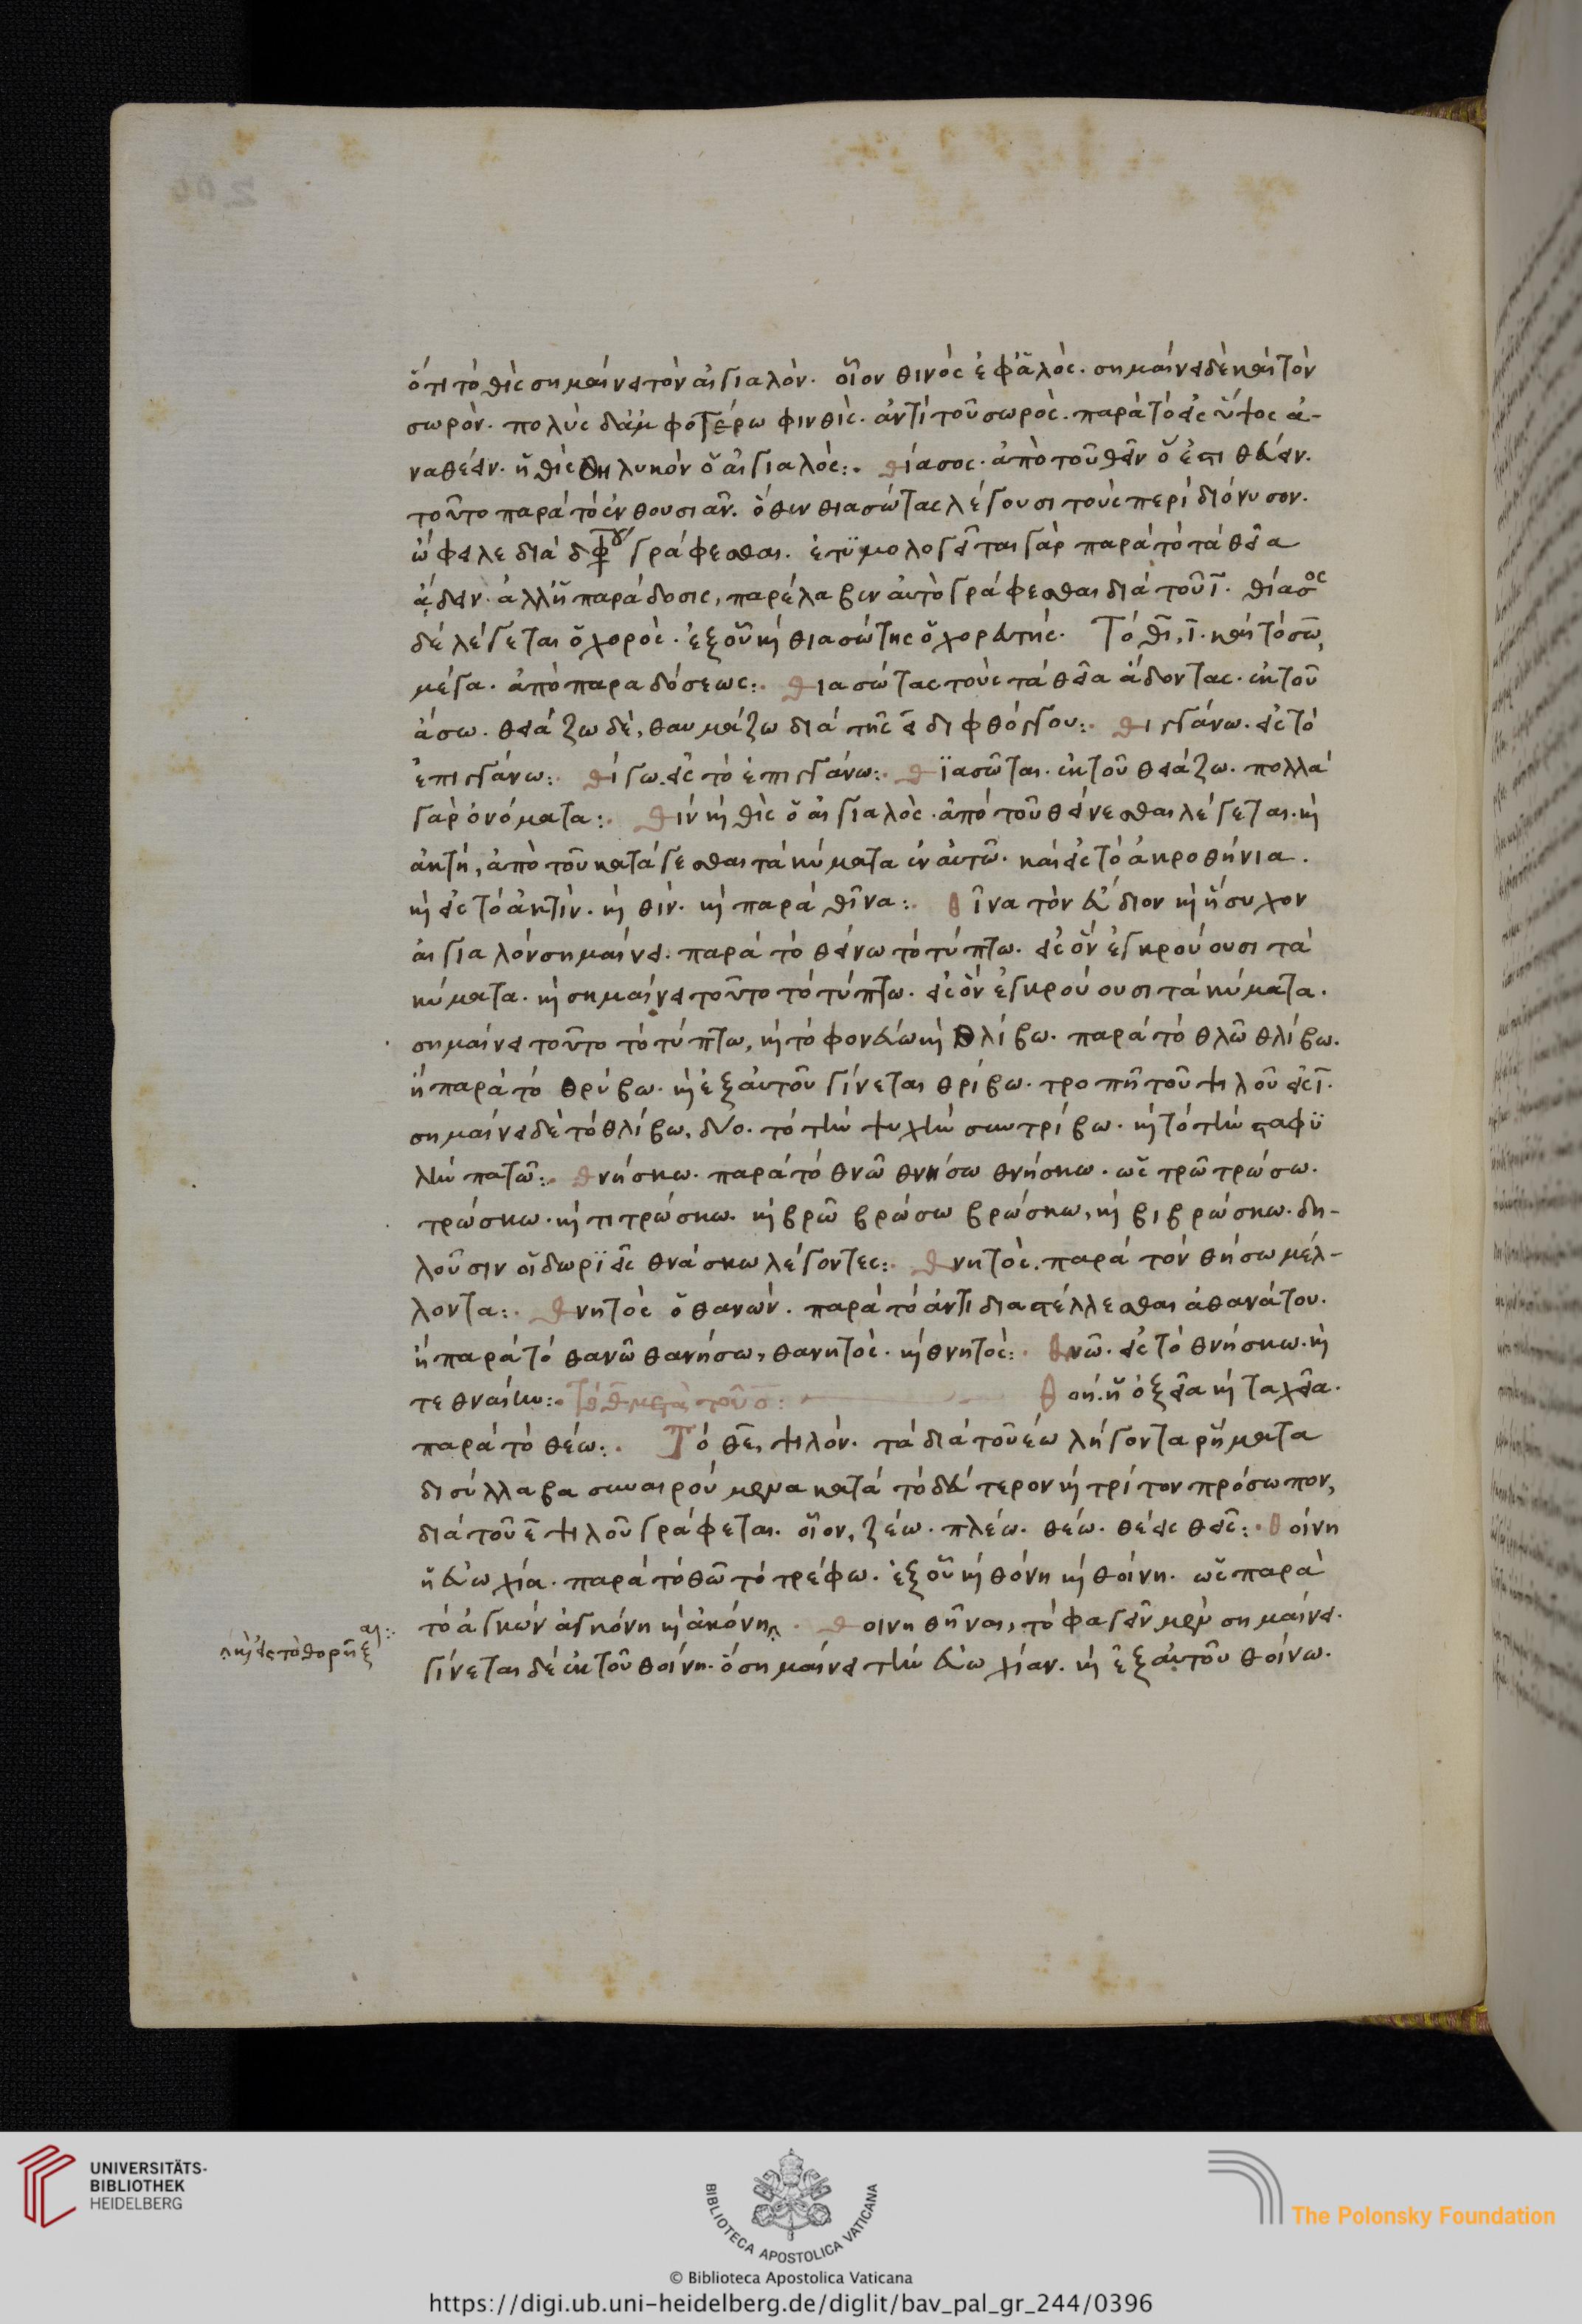 ὅτι τὸ θὶς σημαίνει τὸν αἰγιαλόν. οἷον θινὸς ἐφ' ἁλὸς. σημαίνει δὲ καὶ τὸν
σωρόν. πολὺς δ' ἀμφοτέρω φιν θὶς. ἀντὶ τοῦ σωρὸς. παρὰ τὸ εἰς ὕψος ἀ-
ναθέειν. ἢ θὶς θηλυκὸν ὁ αἰγιαλός:. θίασος. ἀπὸ τοῦ θεῖν ὅ ἐστι θεύειν.
τοῦτο παρὰ τὸ ἐνθουσιᾶν. ὅθεν θιασώτας λέγουσι τοὺς περὶ διόνυσον.
ὤφειλε διὰ διφ γράφεσθαι. ἐτϋμολογεῖται γὰρ παρὰ τὸ τὰ θεῖα
ᾄδειν. ἀλλ' ἡ παράδοσις, παρέλαβεν αὐτὸ γράφεσθαι διὰ τοῦ ϊ. θίασος
δὲ λέγεται ὁ χορὸς. ἐξ οὗ καὶ θιασώτης ὁ χορευτής. Τὸ θῑ, ῑ. καὶ τὸ σω,
μέγα. ἀπὸ παραδόσεως:. θιασώτας τοὺς τὰ θεῖα ᾄδοντας. ἐκ τοῦ
ᾄσω. θειάζω δὲ, θαυμάζω διὰ τῆς ει διφθόγγου:. θιγγάνω. εἰς τὸ
ἐπιγγάνω:. θίγω. εἰς τὸ ἐπιγγάνω:. θϊασῶται. ἐκ τοῦ θειάζω. πολλὰ
γὰρ ὀνόματα:. θὶν καὶ θὶς ὁ αἰγιαλὸς. ἀπὸ τοῦ θείνεσθαι λέγεται. καὶ
ἀκτὴ, ἀπὸ τοῦ κατάγεσθαι τὰ κύματα ἐν αὐτῶ. καὶ εἰς τὸ ἀκροθήνια.
καὶ εἰς τὸ ἀκτίν. καὶ θίν. καὶ παρὰ θῖνα:. θῖνα τὸν εὔδιον καὶ ἥσυχον
αἰγιαλὸν σημαίνει. παρὰ τὸ θείνω τὸ τύπτω. εἰς ὃν ἐγκρούουσι τὰ
κύματα. καὶ σημαίνει τοῦτο τὸ τύπτω. εἰς ὃν ἐγκρούουσι τὰ κύματα.
σημαίνει τοῦτο τὸ τύπτω, καὶ τὸ φονεύω καὶ θλίβω. παρὰ τὸ θλῶ θλίβω.
ἢ παρὰ τὸ θρύβω. καὶ ἐξ αὐτοῦ γίνεται θρίβω. τροπῇ τοῦ ψιλοῦ εἰς ῑ.
σημαίνει δὲ τὸ θλίβω, δύο. τὸ τὴν ψυχὴν συντρίβω. καὶ τὸ τὴν σταφϋ
λὴν πατῶ:. θνήσκω. παρὰ τὸ θνῶ θνήσω θνήσκω. ὡς τρῶ τρώσω.
τρώσκω. καὶ τιτρώσκω. καὶ βρῶ βρώσω βρώσκω, καὶ βιβρώσκω. δη-
λοῦσιν οἱ δωρϊεῖς θνάσκω λέγοντες:. θνητὸς. παρὰ τὸν θήσω μέλ-
λοντα:. θνητὸς ὁ θανών. παρὰ τὸ ἀντιδιαστέλλεσθαι ἀθανάτου.
ἢ παρὰ τὸ θανῶ θανήσω, θανητὸς. καὶ θνητὸς:. θνῶ. εἰς τὸ θνήσκω. καὶ
τεθναίην:. τὸ θ μετὰ τοῦ ο: θοὴ. ἡ ὀξεῖα καὶ ταχεῖα.
παρὰ τὸ θέω:. Τὸ θε, ψιλόν. τὰ διὰ τοῦ εω λήγοντα ῥήματα
δισύλλαβα συναιρούμενα κατὰ τὸ δεύτερον καὶ τρίτον πρόσωπον,
διὰ τοῦ ε ψιλοῦ γράφεται. οἷον, ζέω. πλέω. θέω. θέεις θεῖς:. θοίνη
ἡ εὐωχία. παρὰ τὸ θῶ τὸ τρέφω. ἐξ οὗ καὶ θόνη καὶ θοίνη. ὡς παρὰ
τὸ ἀγκὼν ἀγκόνη καὶ ἀκόνη. θοινηθῆναι, τὸ φαγεῖν μὲν σημαίνει.
γίνεται δὲ ἐκ τοῦ θοίνη. ὃ σημαίνει τὴν εὐωχίαν. καὶ ἐξ αὐτοῦ θοίνω.
καὶ εἰς τὸ θορῆξαι:.
UNIVERSITÄTS-
BIBLIOTHEK
HEIDELBERG
BIBLIOTECA APOSTOLICA VATICANA
The Polonsky Foundation
© Biblioteca Apostolica Vaticana
https://digi.ub.uni-heidelberg.de/diglit/bav_pal_gr_244/0396